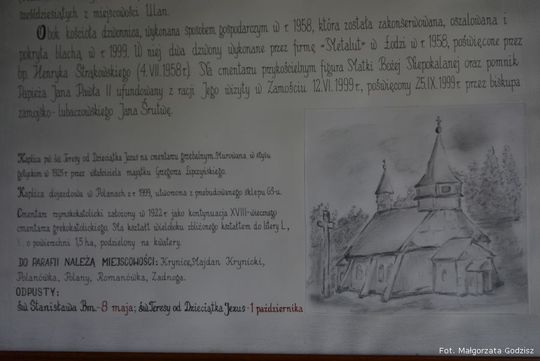 sześćdziesiątych z miejscowości Ulan.
Obok kościoła dzwonnica, wykonana sposobem gospodarczym w r. 1958, która została zakonserwowana, oszalowana i
pokryta blachą w r. 1999. W niej dwa dzwony wykonane przez firmę "Metalut" w Łodzi w r. 1958, poświęcone przez
bp. Henryka Strąkowskiego (4.VII.1958r.). Na cmentarzu przykościelnym figura Matki Bożej Niepokalanej oraz pomnik
Papieża Jana Pawła II ufundowany z racji Jego wizyty w Zamościu 12.VI.1999r., poświęcony 25.IX.1999r. przez biskupa
zamojsko-lubaczowskiego Jana Śrutwę.
Kaplica pw. św. Teresy od Dzieciątka Jezus na cmentarzu grzebalnym. Murowana w stylu
gotyckim w 1925 r. przez właściciela majątku Grzegorza Lipczyńskiego.
Kaplica dojazdowa w Polanach z r. 1999, utworzona z przebudowanego sklepu GS-u.
Cmentarz rzymskokatolicki założony w 1922 r. jako kontynuacja XVIII-wiecznego
cmentarza grekokatolickiego. Ma kształt wieloboku zbliżonego kształtem do litery L,
o powierzchni 1,5 ha, podzielony na kwatery.
DO PARAFII NALEŻĄ MIEJSCOWOŚCI: Krynice, Majdan Krynicki,
Polanówka, Polany, Romanówka, Zadnoga.
ODPUSTY:
św. Stanisława Bm. - 8 maja; św. Teresy od Dzieciątka Jezus - 1 października
Fot. Małgorzata Godzisz